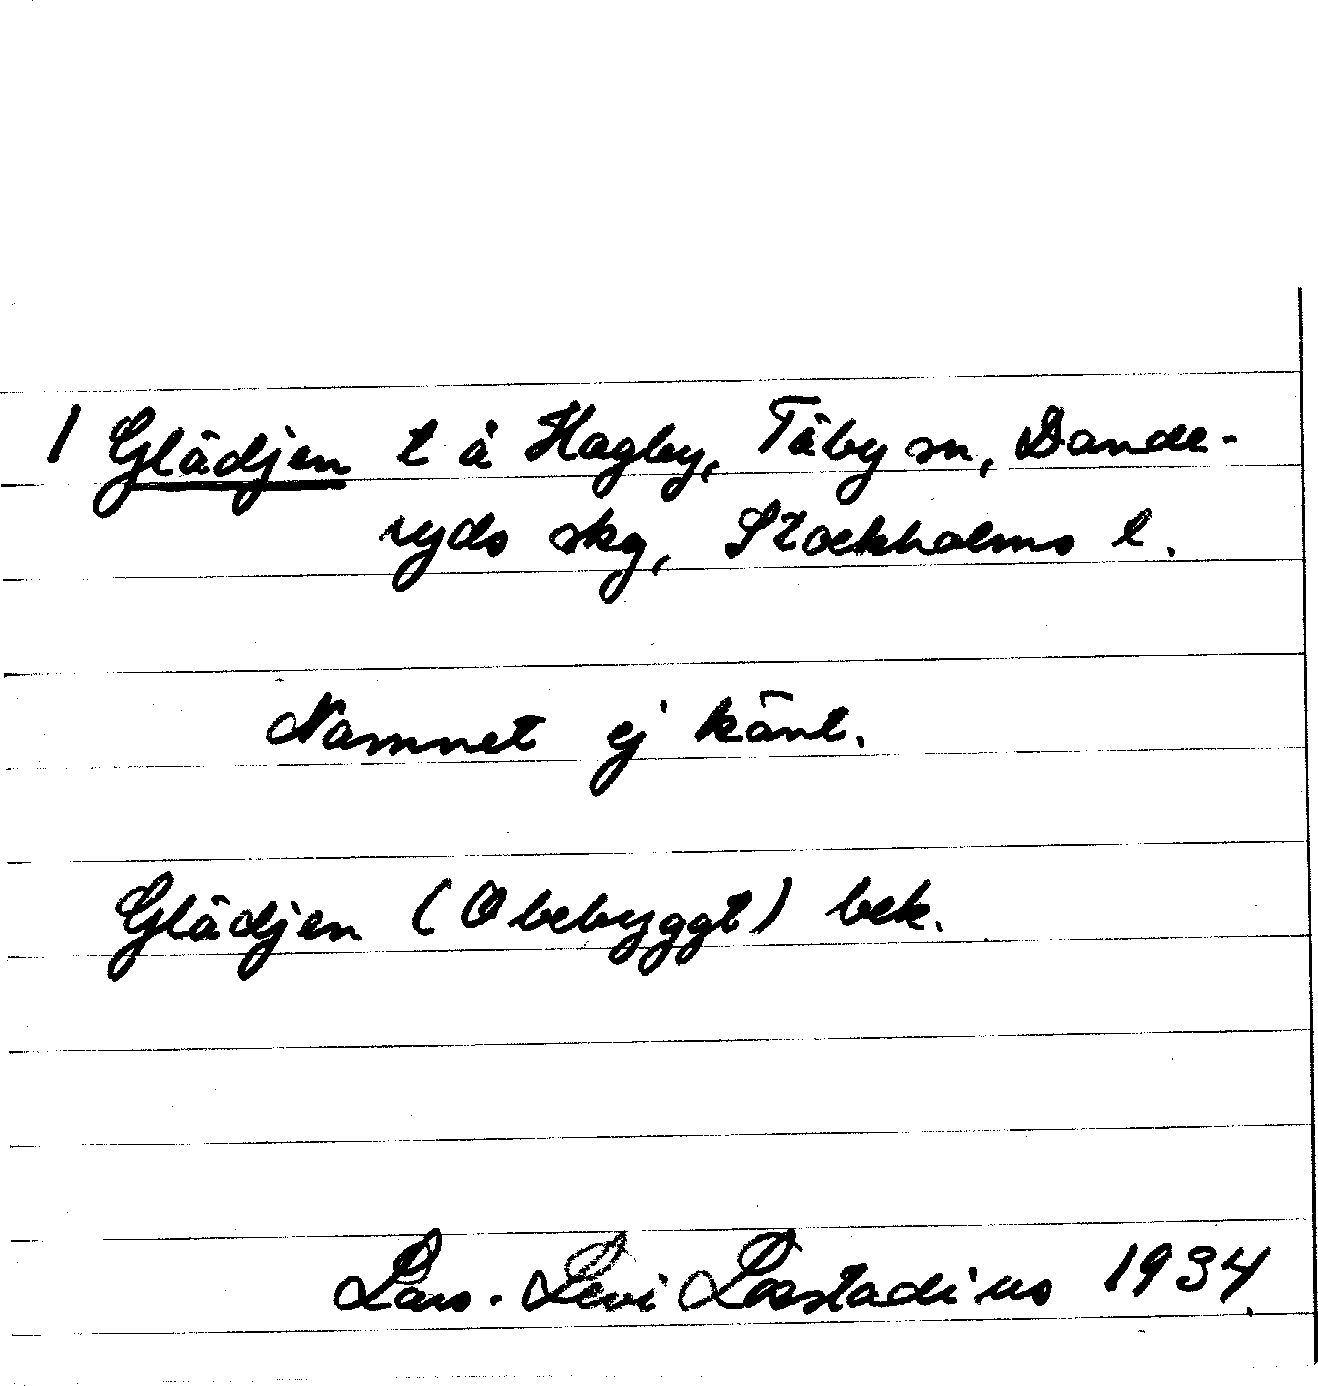 1 Glädjen t å Hagby, Täby sn, Dande-
ryds skg, Stockholms l.
Namnet ej känt.
Glädjen (Obebyggt) bek.
Lars-Levi Læstadius 1934.